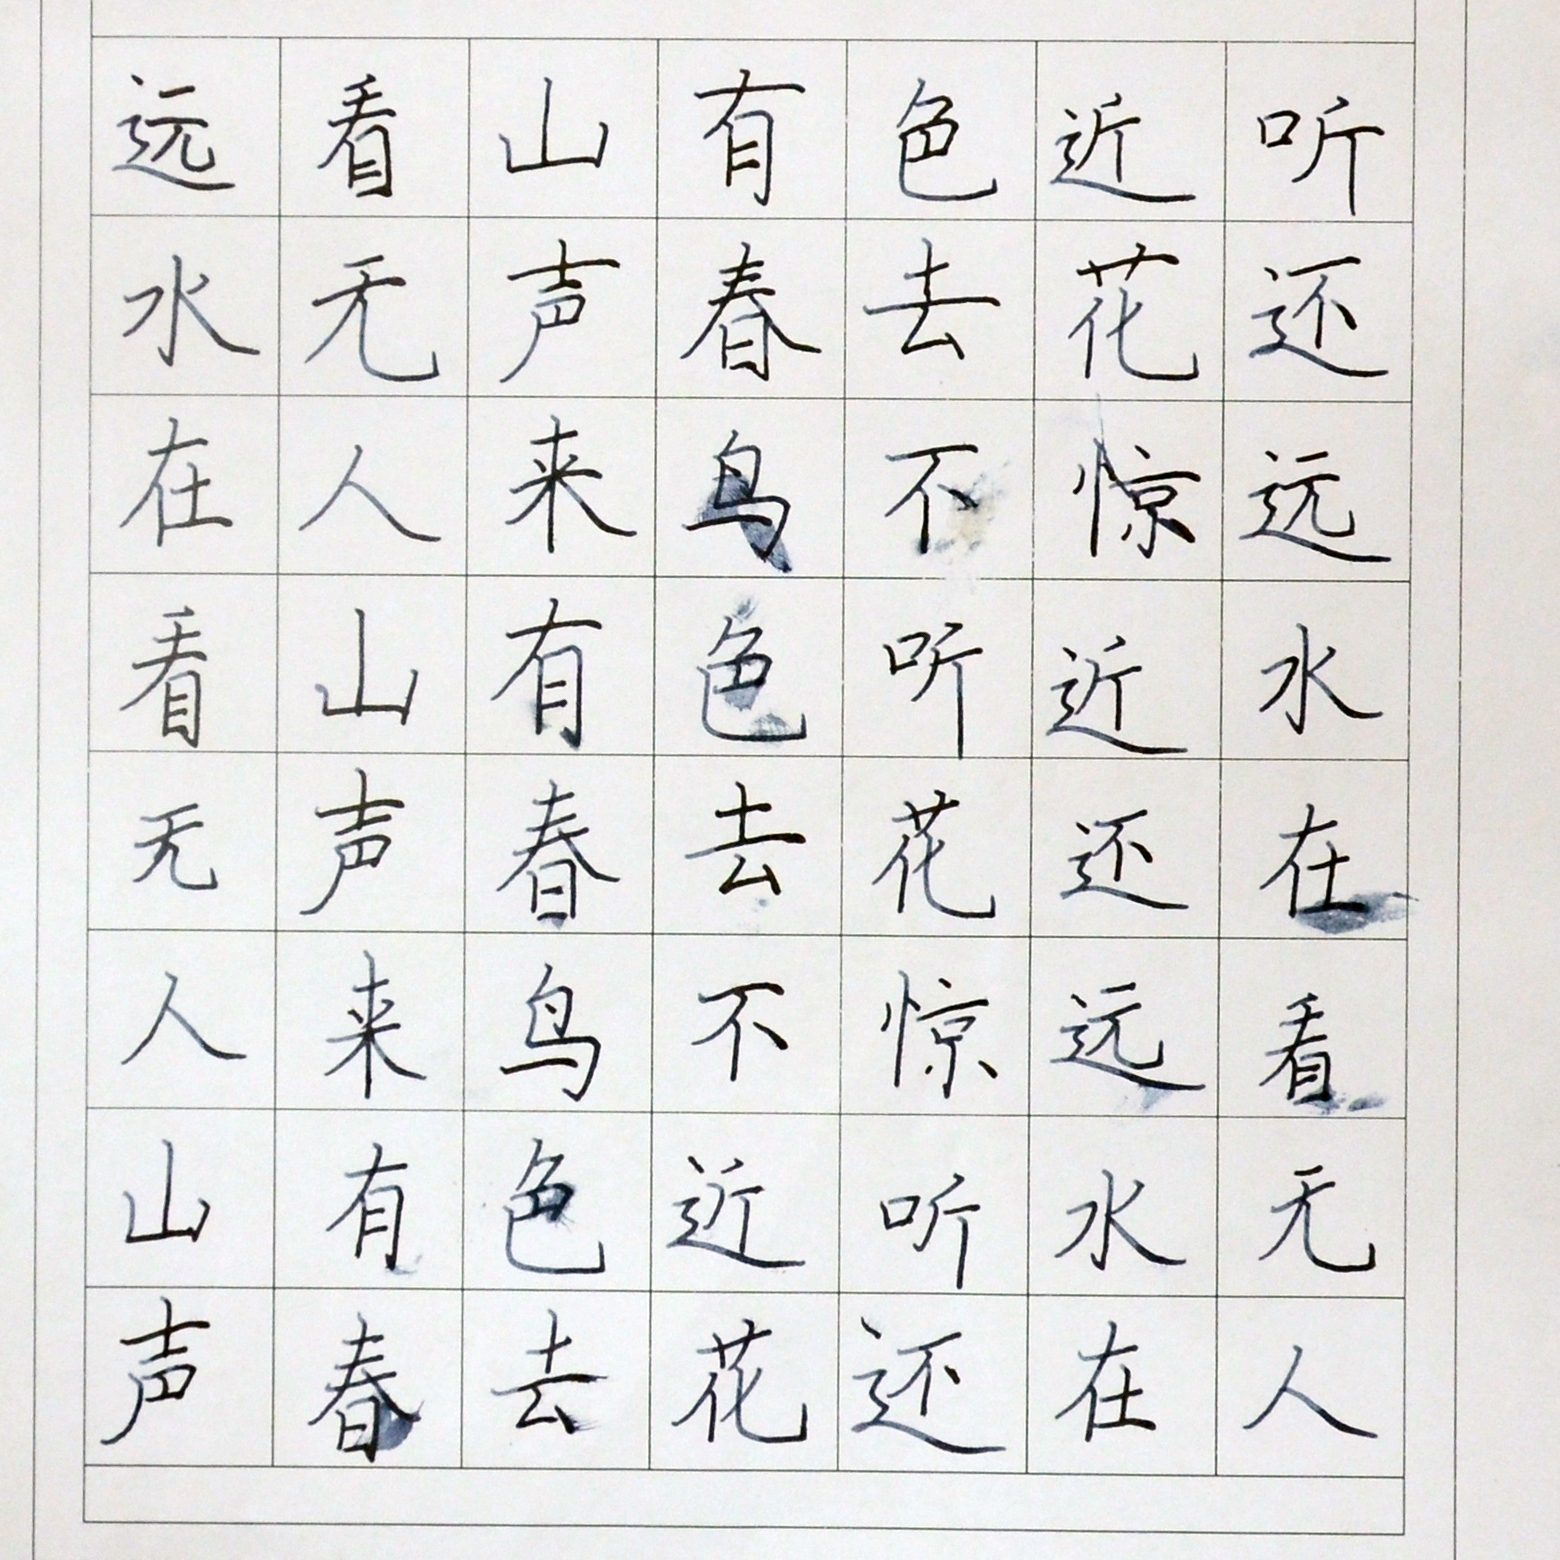 远看山有色近听
水无声春去花还
在人来鸟不惊远
看山有色听近水
无声春去花还在
人来鸟不惊远看
山有色近听水无
声春去花还在人